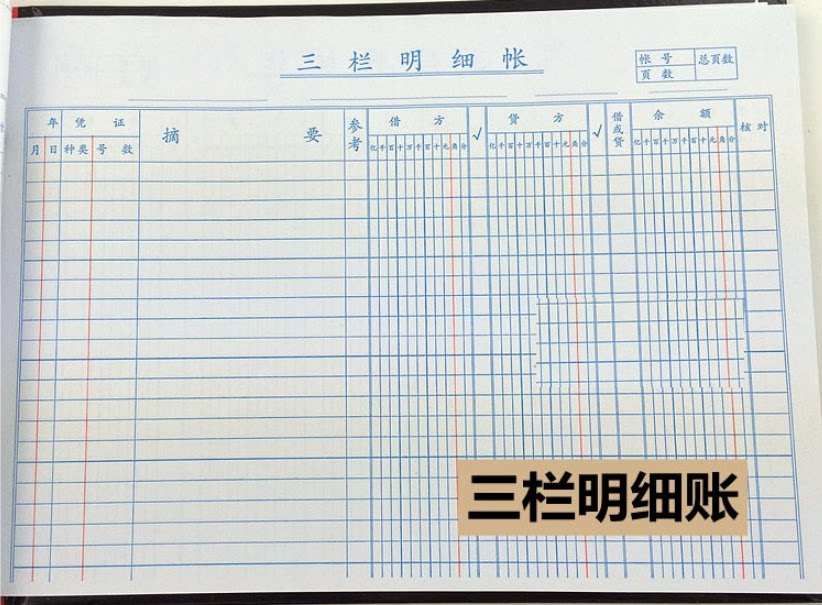 三栏明细帐
帐号 总页数
页数
年 凭证 摘要 参考 借方 √ 贷方 √ 借或贷 余额 核对
月 日 种类 号数 亿千百十万千百十元角分 亿千百十万千百十元角分 亿千百十万千百十元角分
三栏明细账